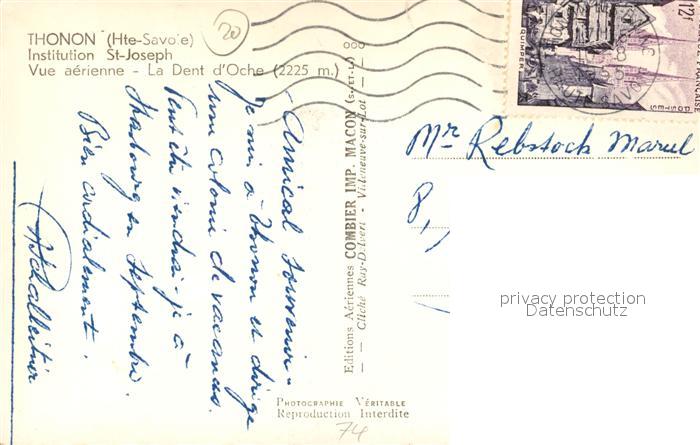 THONON (Hte-Savoie)
Institution St-Joseph
Vue aérienne - La Dent d'Oche (2225 m.)
20
12F
POSTES
QUIMPER
Amical souvenir -
Je suis à Thonon et dirige
une colonie de vacances.
Peut être viendrai-je à
Strasbourg en Septembre.
Bien cordialement.
Editions Aériennes COMBIER IMP. MACON (S.-ET-L.)
Cliché Ray-Delvert - Villeneuve-sur-Lot
Mr Rebstock Marcel
8,
privacy protection
Datenschutz
PHOTOGRAPHIE VÉRITABLE
Reproduction Interdite
74